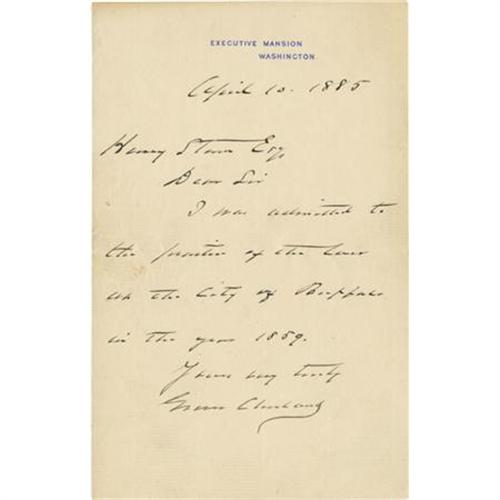 EXECUTIVE MANSION
WASHINGTON
April 10. 1885
Henry Esq,
Dear Sir
I was admitted to
the practice of the Law
in the City of Buffalo
in the year 1859.
Yours very truly
Grover Cleveland